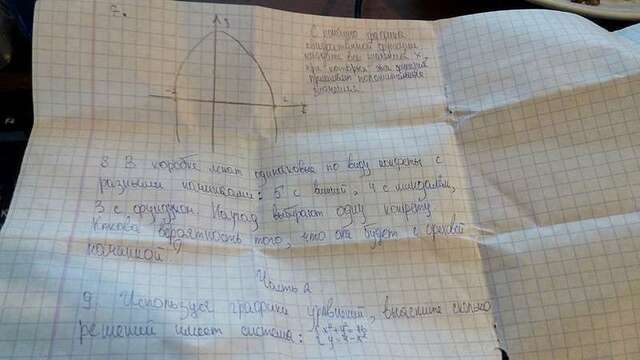 7.
y
С помощью графика
квадратичной функции
найдите все значения x,
при которых эта функция
принимает положительные
значения.
-2 2
x
8 В коробке лежат одинаковые по виду конфеты с
разными начинками: 5 с вишней, 4 с миндалём,
3 с фундуком. Наугад выбирают одну конфету
Какова вероятность того, что она будет с ореховой
начинкой?
Часть 2
9. Используя графики уравнений, выясните сколько
решений имеет система: { x²+y²=16
y=4-x²